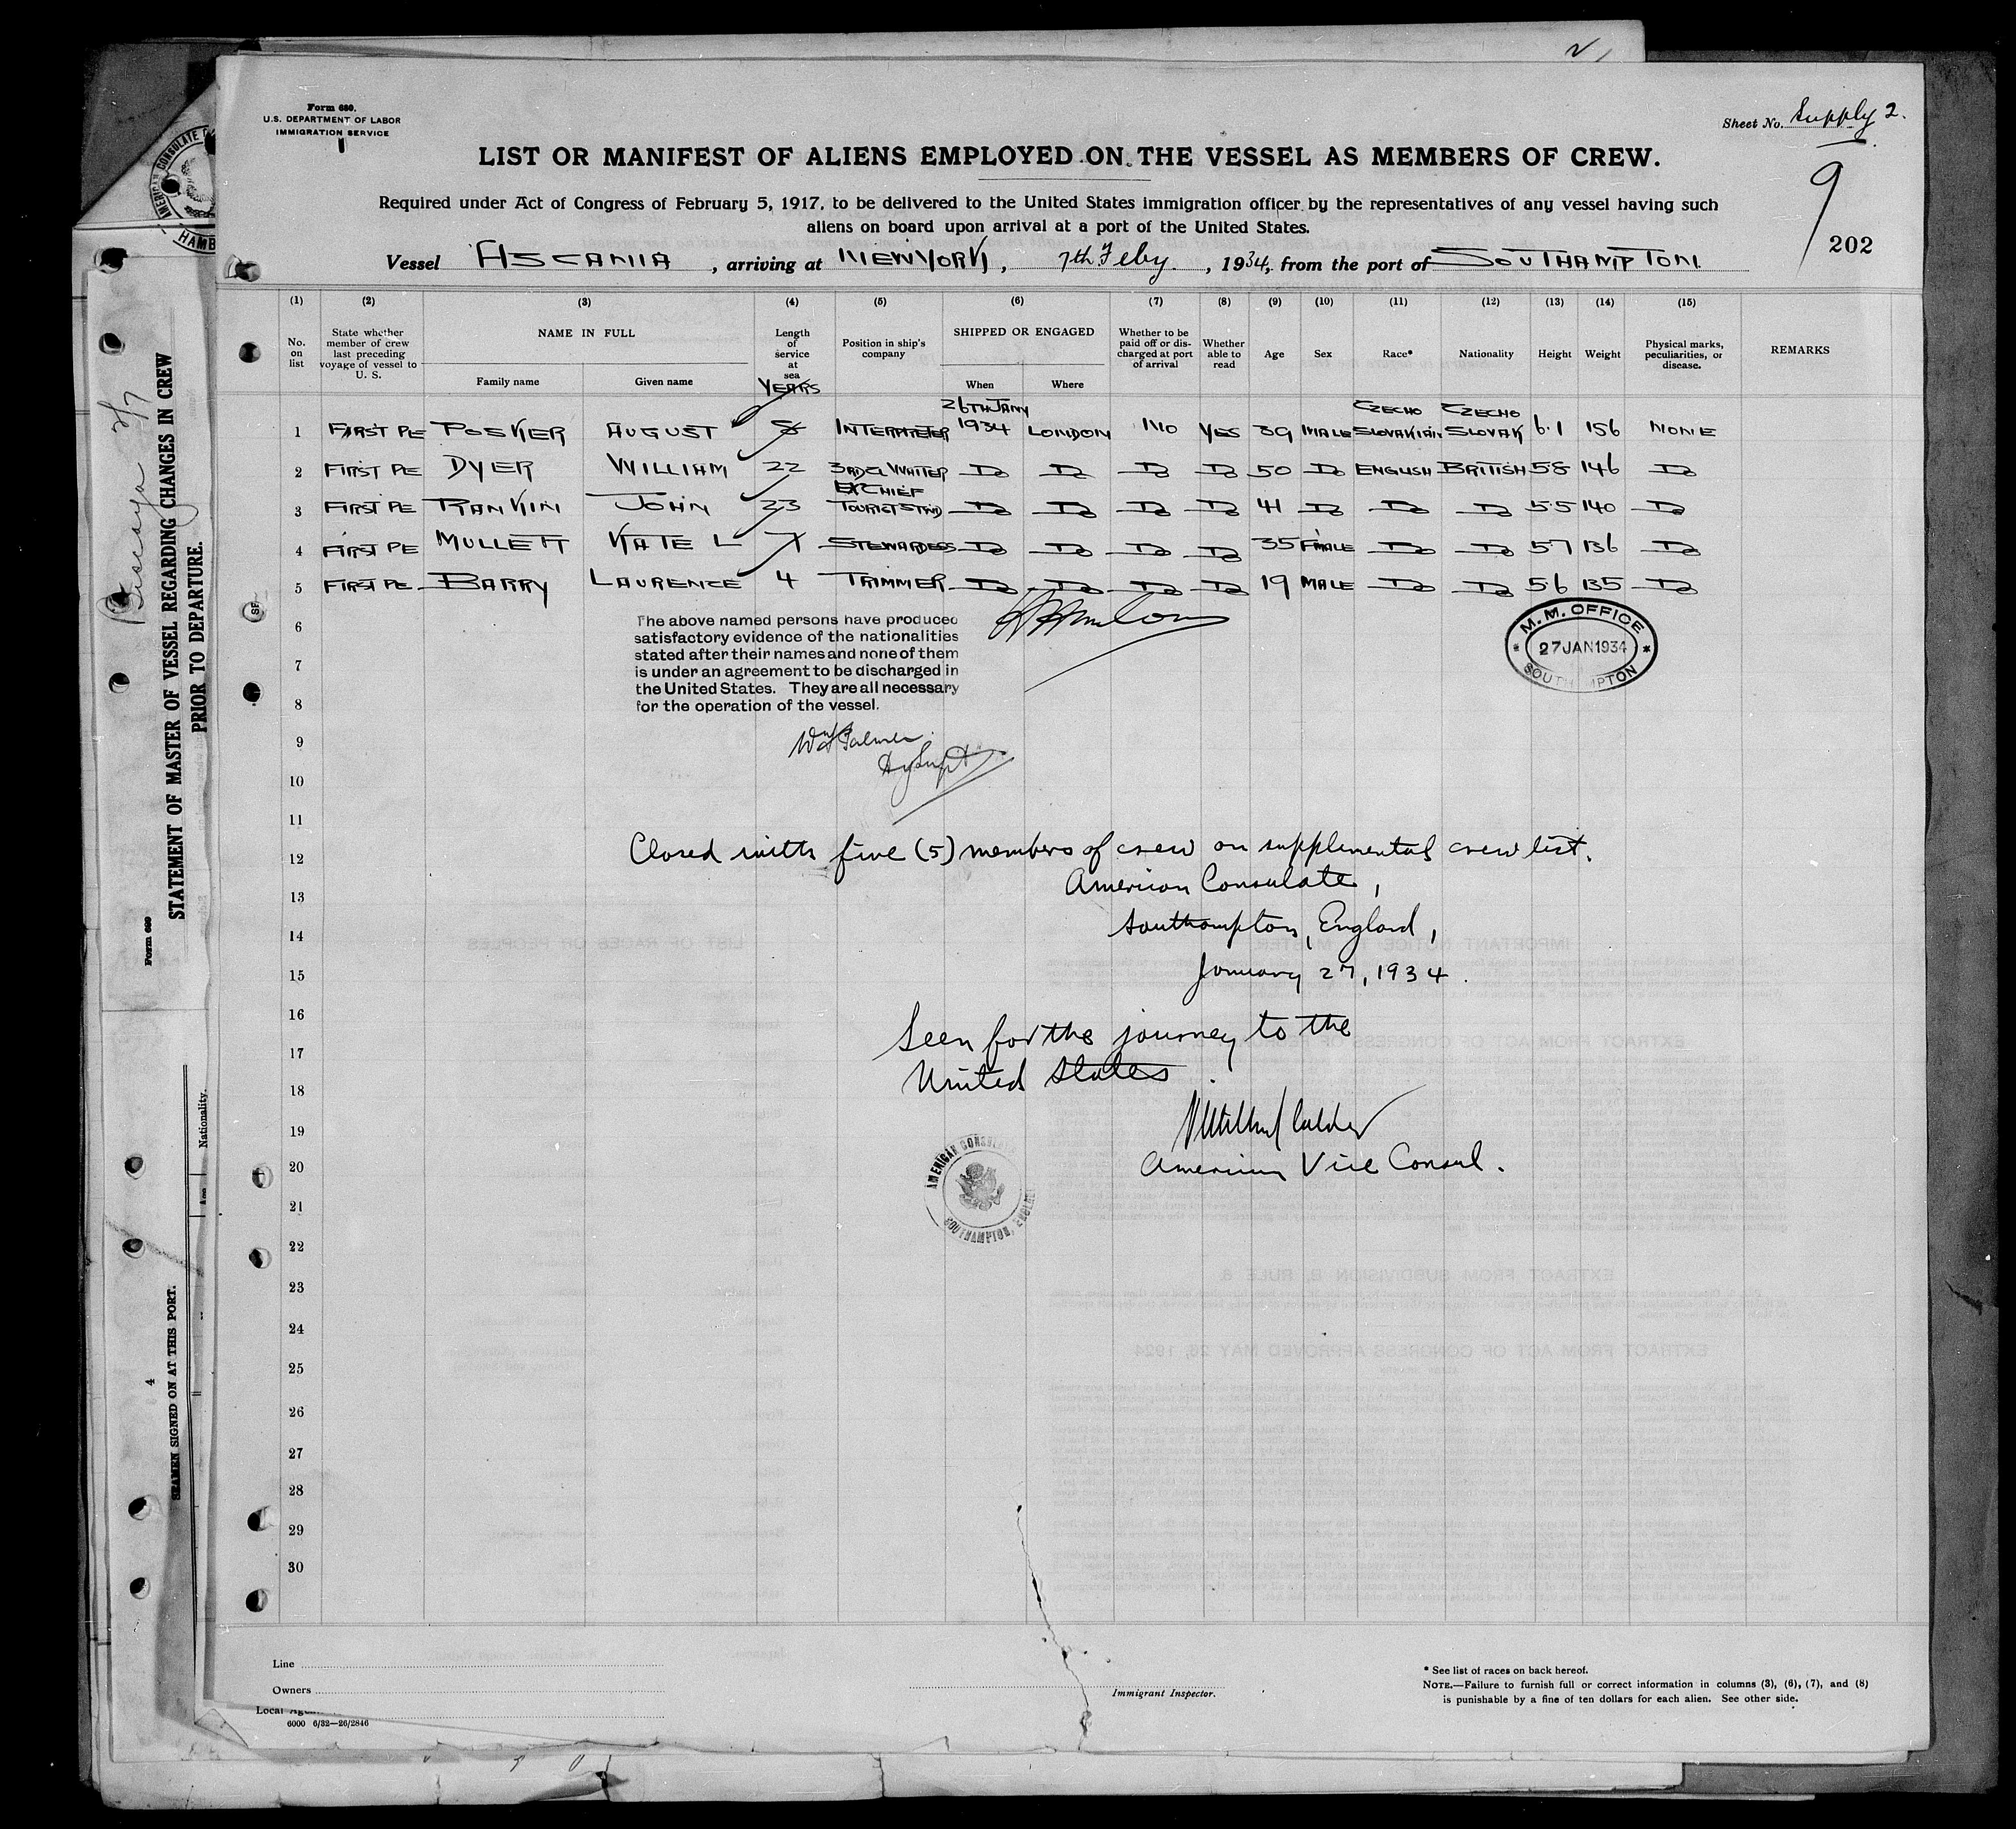 Form 680.
U.S. DEPARTMENT OF LABOR
IMMIGRATION SERVICE
Sheet No. Supply 2.
LIST OR MANIFEST OF ALIENS EMPLOYED ON THE VESSEL AS MEMBERS OF CREW.
9
Required under Act of Congress of February 5, 1917, to be delivered to the United States immigration officer by the representatives of any vessel having such
aliens on board upon arrival at a port of the United States.
202
Vessel ASCANIA, arriving at NEW YORK, 7th Feby, 1934, from the port of SOUTHAMPTON.
(1) (2) (3) (4) (5) (6) (7) (8) (9) (10) (11) (12) (13) (14) (15)
No. on list
State whether member of crew last preceding voyage of vessel to U. S.
NAME IN FULL
Family name Given name
Length of service at sea
YEARS
Position in ship's company
SHIPPED OR ENGAGED
When Where
Whether to be paid off or discharged at port of arrival
Whether able to read
Age
Sex
Race*
Nationality
Height
Weight
Physical marks, peculiarities, or disease.
REMARKS
1 FIRST PE POSKIER AUGUST 8 INTERPRETER 26TH JANY 1934 LONDON NO YES 39 MALE CZECHO SLOVAKIAN CZECHO SLOVAK 6.1 156 NONE
2 FIRST PE DYER WILLIAM 22 3RD CL WAITER DO DO DO DO 50 DO ENGLISH BRITISH 5 8 146 DO
3 FIRST PE RANKIN JOHN 23 EX CHIEF TOURIST STWD DO DO DO DO 41 DO DO DO 5.5 140 DO
4 FIRST PE MULLETT KATE L 7 STEWARDESS DO DO DO DO 35 F'MALE DO DO 5.7 136 DO
5 FIRST PE BARRY LAURENCE 4 TRIMMER DO DO DO DO 19 MALE DO DO 5 6 135 DO
6
7
8
9
10
11
12
13
14
15
16
17
18
19
20
21
22
23
24
25
26
27
28
29
30
The above named persons have produced
satisfactory evidence of the nationalities
stated after their names and none of them
is under an agreement to be discharged in
the United States. They are all necessary
for the operation of the vessel.
M. M. OFFICE
27 JAN 1934
SOUTHAMPTON
Closed with five (5) members of crew on supplemental crew list.
American Consulate,
Southampton, England,
January 27, 1934.
Seen for the journey to the
United States.
American Vice Consul.
AMERICAN CONSULATE
SOUTHAMPTON, ENGLAND
Line
Owners
Local Agen
6000 6/32—26/2846
Immigrant Inspector.
* See list of races on back hereof.
NOTE.—Failure to furnish full or correct information in columns (3), (6), (7), and (8)
is punishable by a fine of ten dollars for each alien. See other side.
AMERICAN CONSULATE
HAMB
Form 689
STATEMENT OF MASTER OF VESSEL REGARDING CHANGES IN CREW
PRIOR TO DEPARTURE.
4
SEAMEN SIGNED ON AT THIS PORT.
Nationality.
Age